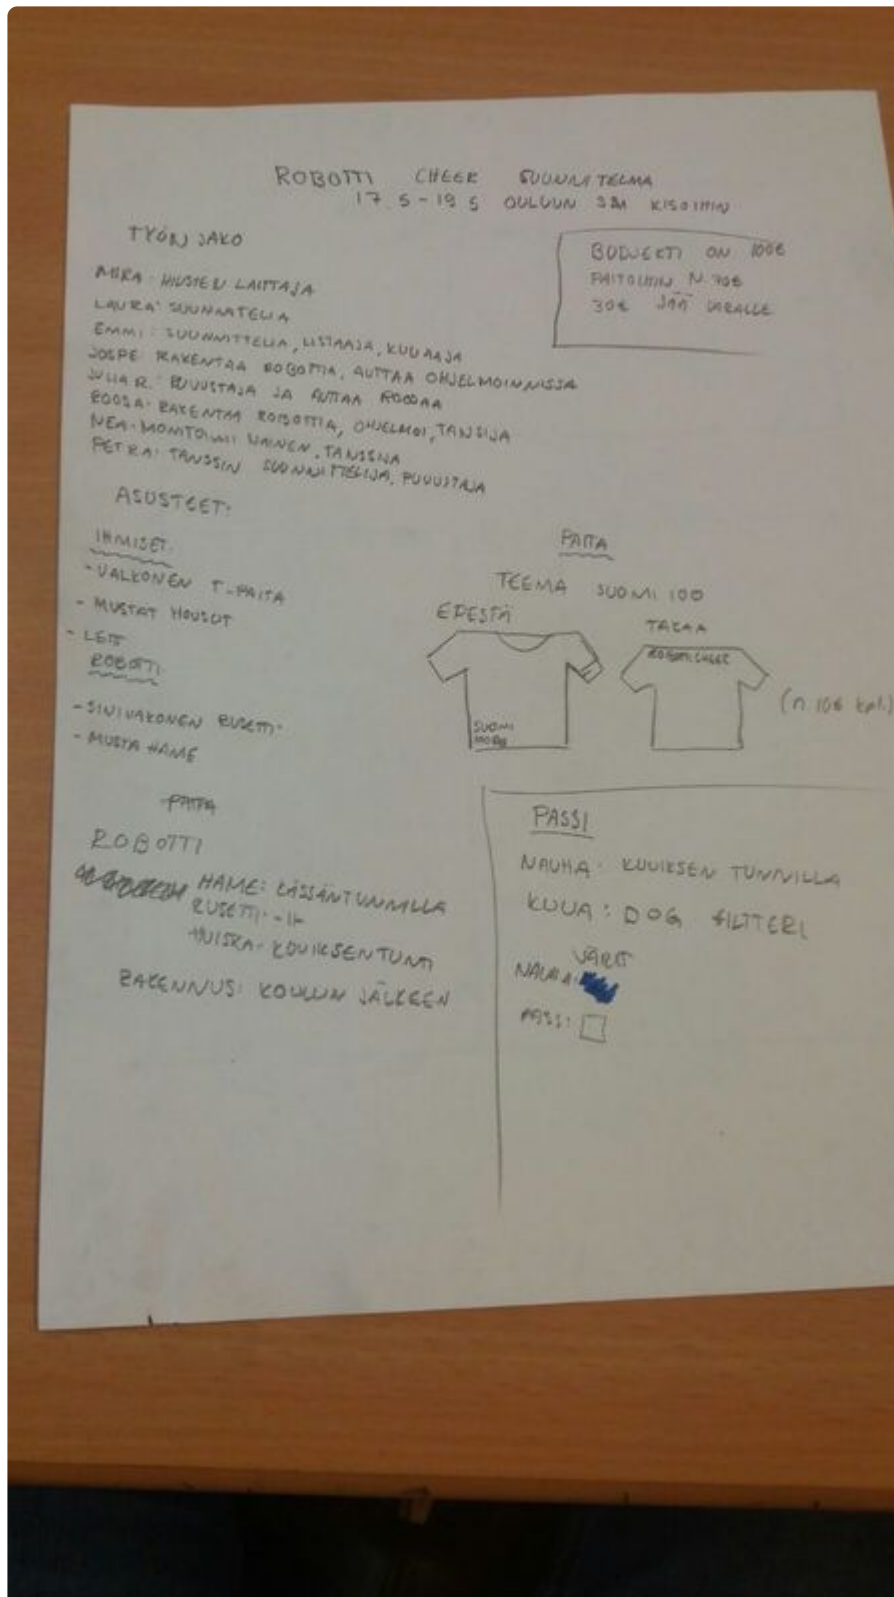 ROBOTTI CHEER SUUNNITELMA
17.5-19.5 OULUUN SM KISOIHIN
TYÖNJAKO
BUDJEKTI ON 100€
PAITOIHIN N. 70€
30€ JÄÄ VARALLE
MIRA: HIUSTEN LAITTAJA
LAURA: SUUNNATELIA
EMMI: SUUNNITTELIA, LISTAAJA, KUVAAJA
JOSPE: RAKENTAA ROBOTTIA, AUTTAA OHJELMOINNISSA
JULIA R.: PUVUSTAJA JA AUTTAA ROOSAA
ROOSA: RAKENTAA ROBOTTIA, OHJELMOI, TANSIJA
NEA: MONITOIMI NAINEN, TANSSIJA
PETRA: TANSSIN SUUNNITTELIJA, PUVUSTAJA
ASUSTEET:
IHMISET:
- VALKONEN T-PAITA
- MUSTAT HOUSUT
- LETIT
ROBOTTI:
- SINIVAKONEN RUSETTI
- MUSTA HAME
PAITA
TEEMA SUOMI 100
EDESTÄ
TAKAA
SUOMI
ROBOTTI CHEER
(n. 10€ kpl.)
PAITA
ROBOTTI
HAME: KÄSSÄNTUNNILLA
RUSETTI: -II-
HUISKA: KUVIKSEN TUNTI
RAKENNUS: KOULUN JÄLKEEN
PASSI
NAUHA: KUVIKSEN TUNNILLA
KUVA: DOG FILTTERI
VÄRIT
NAUHA:
PASSI: